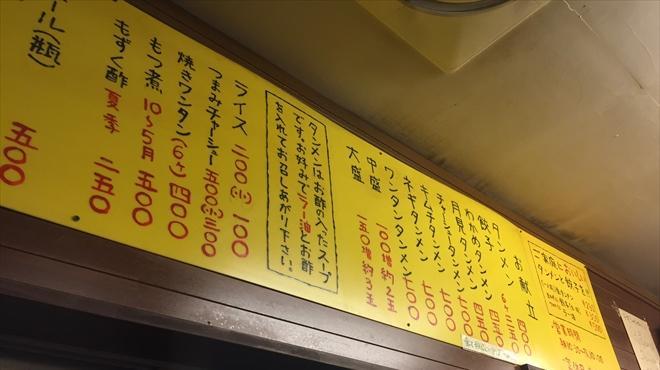 お献立
タンメン 四〇〇
餃子 6ケ 三五〇
わかめタンメン 四五〇
月見タンメン 四五〇
チャーシュウタンメン 七〇〇
キムチタンメン 七〇〇
ネギタンメン 七〇〇
ワンタンタンメン 七〇〇
中盛 一〇〇増 約2玉
大盛 一五〇増 約3玉
タンメンはお酢の入ったスープ
です。お好みでラー油とお酢
お入れてお召しあがり下さい。
ライス 二〇〇 (小) 一〇〇
つまみチャーシー 五〇〇 (小) 三〇〇
焼きワンタン (6ケ) 四〇〇
もつ煮 10〜5月 五〇〇
もずく酢 夏季 二五〇
ール(瓶) 五〇〇
営業時間